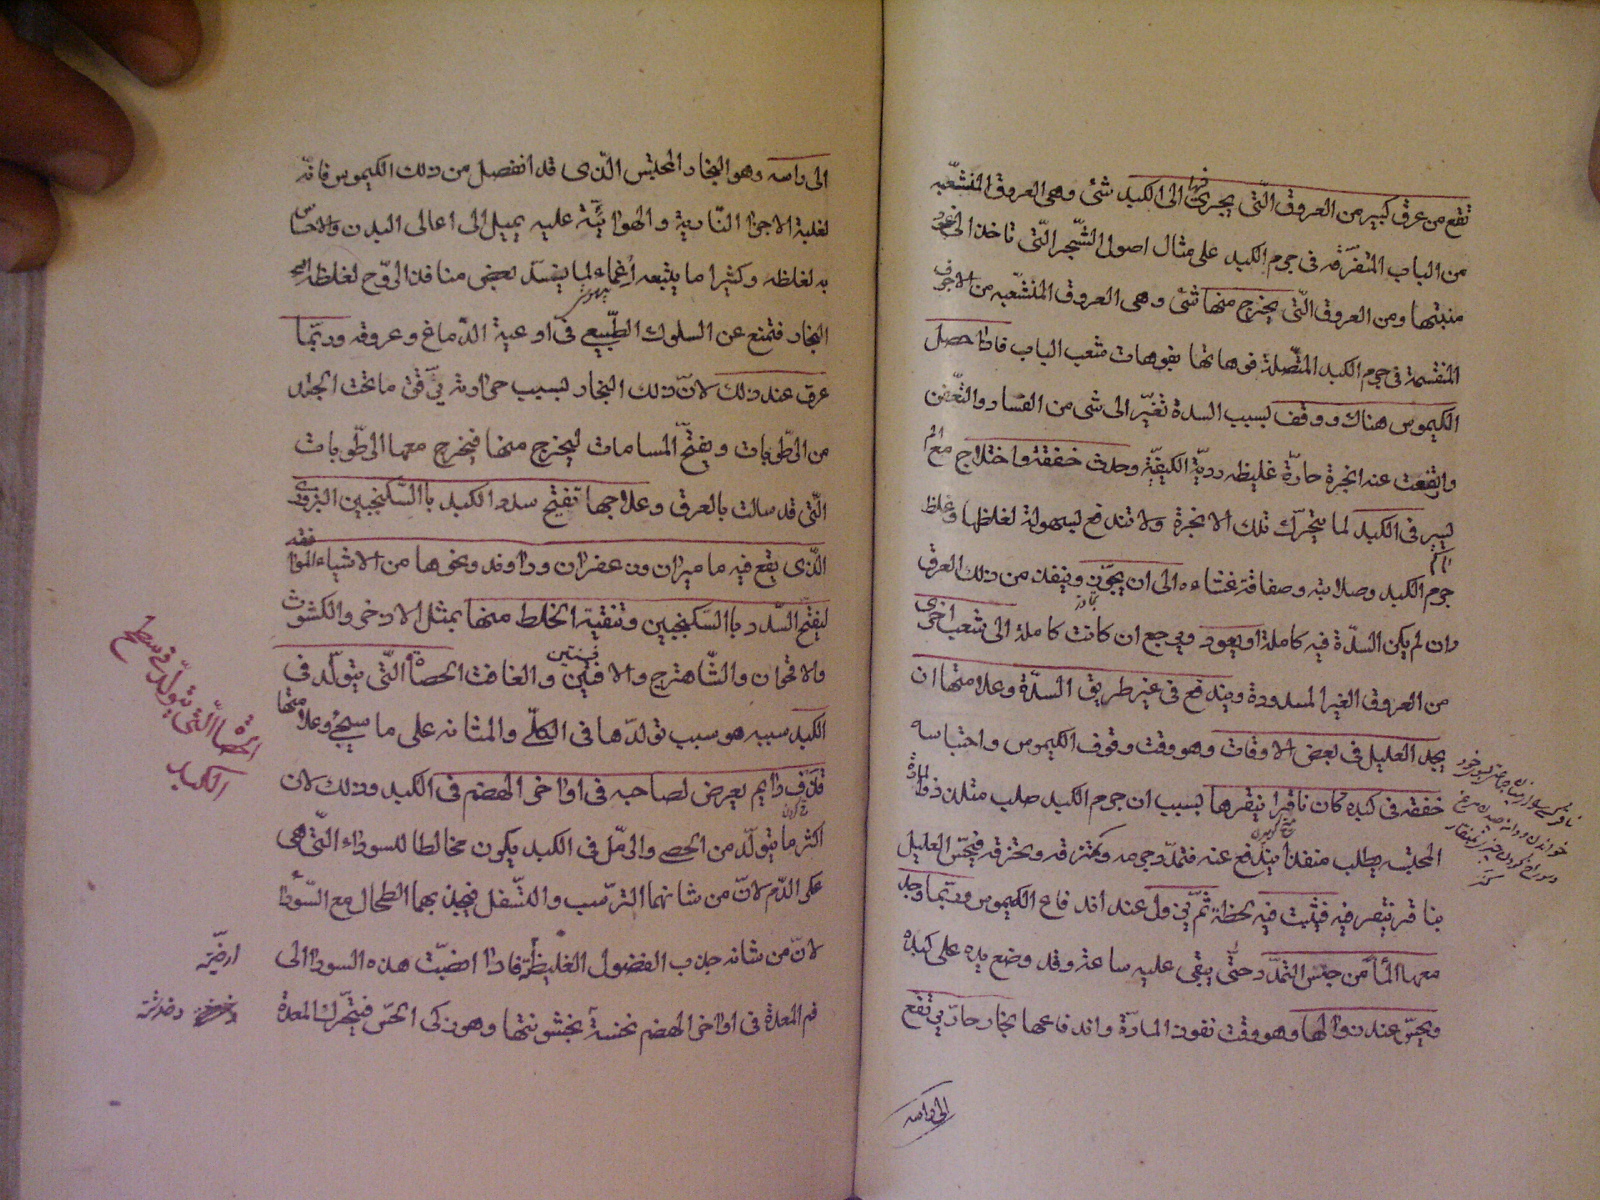 تقع من عرق كبير من العروق الّتى يجرى فيها الى الكبد شئ وهى العروق المنشعّبه
من الباب المتفرّقه فى جرم الكبد على مثال اصول الشّجر الّتى تاخذ الى غور
منبتها ومن العروق الّتى يخرج منها شئ وهى العروق المنشعّبه من الاجوف
المنقسمة فى جرم الكبد المتّصلة فوهاتها بفوهات شعب الباب فاذا حصل
الكيموس هناك ووقف بسبب السدة تغيّر الى شى من الفساد والتعّفن
وارتفعت عنه ابخرة حادّة غليظه رديّة الكيفيّة وحدث خفقة واختلاج مع الم
يسير فى الكبد لما يتحرّك تلك الابخرة ولا تندفع بسهولة لغلظها وغلظ
جرم الكبد وصلابته وصفاقة غشاءه الى ان يجوّز وينفذ من ذلك العرق
وان لم يكن السدّة فيه كاملة او يعود ويرجع ان كانت كاملة الى شعب اخرى
من العروق الغير المسدودة ويندفع فى غير طريق السدّة وعلامتها ان
يجد العليل فى بعض الاوقات وهو وقت وقوف الكيموس واحتباسه
خفقه فى كبده كان ناقرا ينقرها بسبب ان جرم الكبد صلب متلزز والمادّة
المحتبسه يطلب منفذا يندفع عنه فتمدّد جرمه وتمزقه وتخرقه فيحّس العليل
بناقر ينقر فيه فيثبت فيه لحظة ثمّ يزول عند اندفاع الكيموس وربّما وجد
معها الماً من جنس التمدّد حتّى يبقى عليه ساعة وقد وضع يده على كبده
ويحسّ عند زوالها وهو وقت نفوذ المادّة واندفاعها بخار حارّ يرتفع
الى راسه
الى راسه وهو البخار المحتبس الّذى قد انفصل من ذلك الكيموس فانّه
لغلبة الاجزا النّارية والهوائيّة عليه يميل الى اعالى البدن والاحساس
به لغلظه وكثيرا ما يتبعه اغماء لما ينسدّ بعض منافذ الروّح لغلظ
البخار فتمنع عن السلوك الطّبيعى فى اوعية الدّماغ وعروقه وربّما
عرق عند ذلك لانّ ذلك البخار بسبب حرارته يرقّق ما تحت الجلد
من الرّطوبات ويفتّح المسامات ليخرج منها فيخرج معها الرّطوبات
الّتى قد سالت بالعرق وعلاجها تفتيح سدد الكبد باالسّكنجبين البزورى
الّذى يقع فيه ماميران وزعفران وراوند ونحوها من الاشياء الموافقه
ليفتّح السّدد باالسّكنجبين وتنقية الخلط منها بمثل الاذخر والكشوث
والاقحوان والشّاهترج والافسنتين والغافت الحصاة الّتى يتولّد فى
الكبد سببه هو سبب تولّدها فى الكلّى والمثانه على ما سيجئ وعلامتها
قذف دايم يعرض لصاحبه فى اواخر الهضم فى الكبد وذلك لان
اكثر ما يتولّد من الحصى والرّمل فى الكبد يكون مخالطا للسوداء الّتى هى
عكر الدّم لانّ من شانهما الترسّب والتسّفل فيجذبهما الطحال مع السّودا
لانّ من شانه جذب الفضول الغليظة فاذا انصبّت هذه السودا الى
ارضيّه
فم المعدة فى اواخر الهضم نخسة بخشونتها وهو ذكى الحسّ فيتحّرك المعدة
الحصاة الّتى يتولّد فى سطح
الكبد